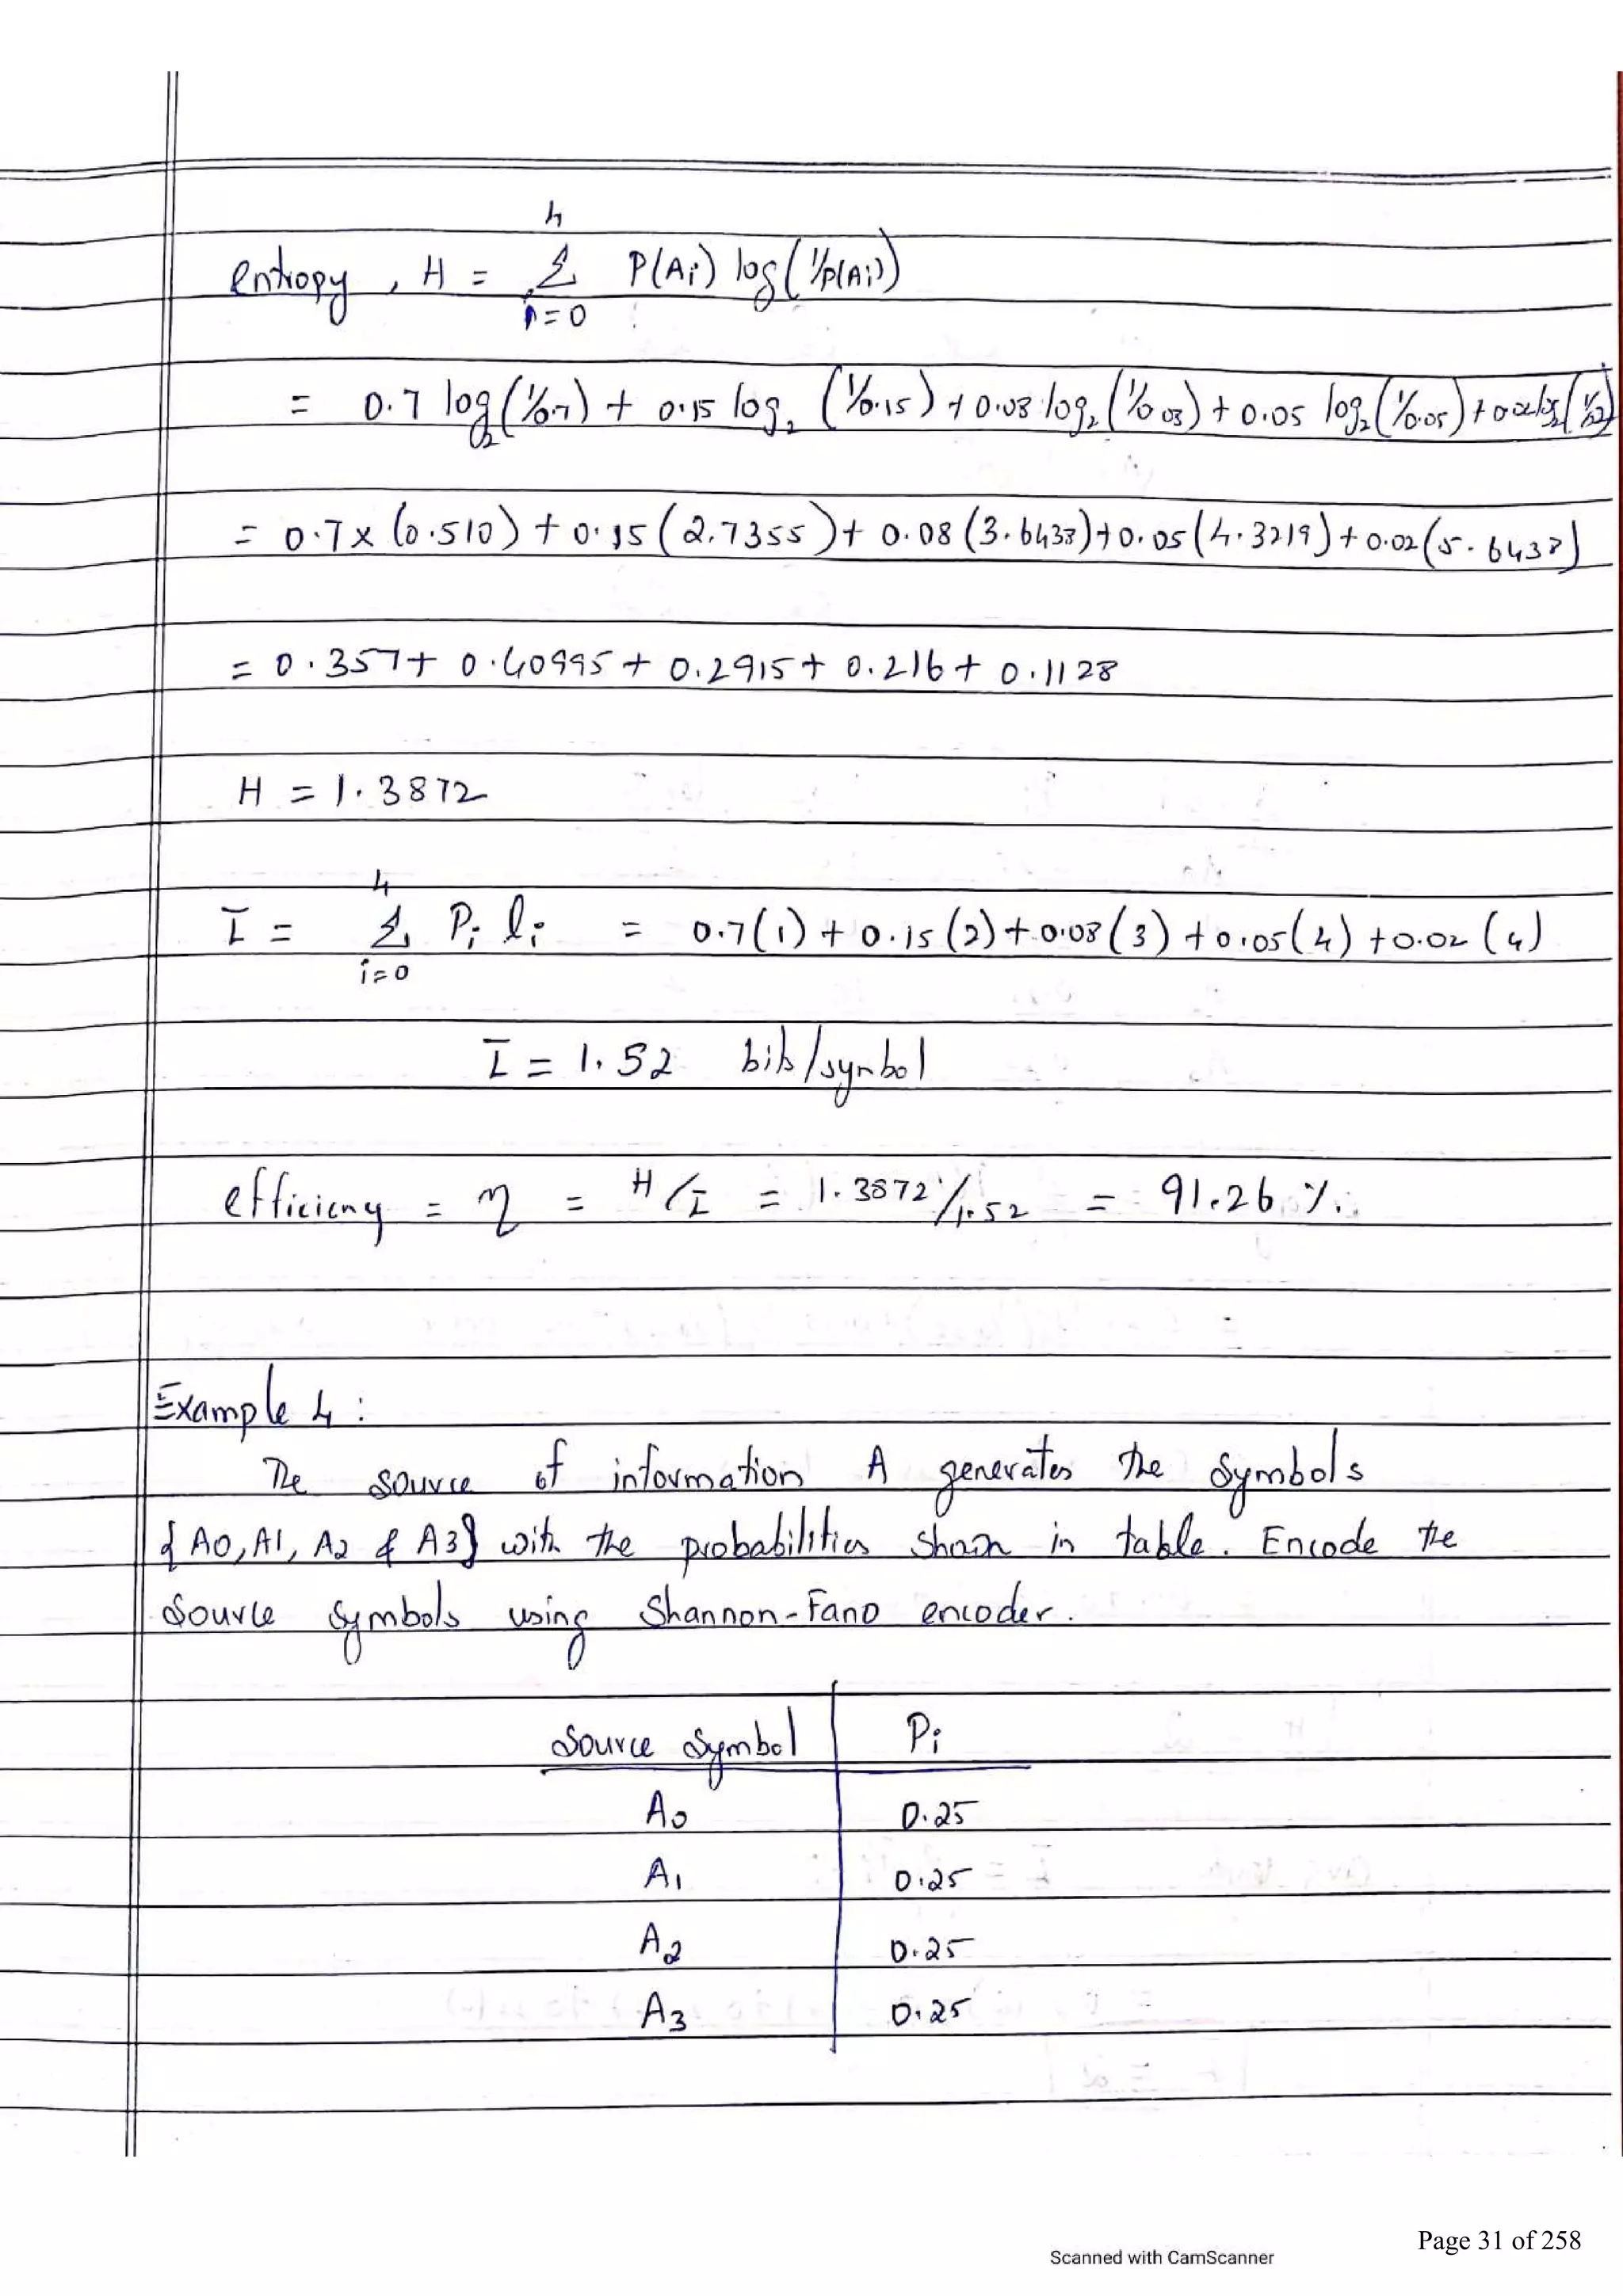 4
entropy, H = Σ P(Ai) log(1/P(Ai))
i=0
= 0.7 log2(1/0.7) + 0.15 log2(1/0.15) + 0.08 log2(1/0.08) + 0.05 log2(1/0.05) + 0.02 log2(1/0.02)
= 0.7 x (0.510) + 0.15(2.7355) + 0.08(3.6438) + 0.05(4.3219) + 0.02(5.6438)
= 0.357 + 0.40995 + 0.2915 + 0.216 + 0.1128
H = 1.3872
4
L̄ = Σ Pi li = 0.7(1) + 0.15(2) + 0.08(3) + 0.05(4) + 0.02(4)
i=0
L̄ = 1.52 bits/symbol
efficiency = η = H/L̄ = 1.3872/1.52 = 91.26 %.
Example 4 :
The source of information A generates the symbols
{A0, A1, A2 & A3} with the probabilities shown in table. Encode the
source symbols using Shannon-Fano encoder.
Source Symbol Pi
A0 0.25
A1 0.25
A2 0.25
A3 0.25
Page 31 of 258
Scanned with CamScanner